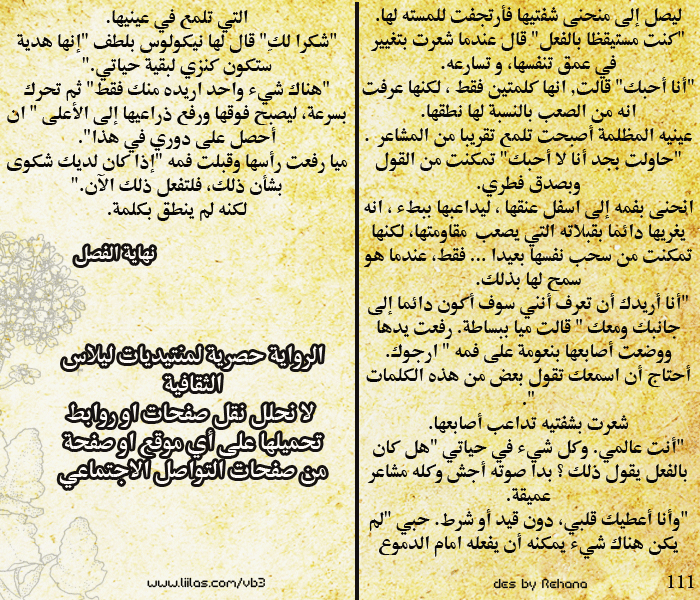 ليصل إلى منحنى شفتيها فأرتجفت للمسته لها.
"كنت مستيقظا بالفعل" قال عندما شعرت بتغيير
في عمق تنفسها، و تسارعه.
"أنا أحبك" قالت, انها كلمتين فقط ، لكنها عرفت
انه من الصعب بالنسة لها نطقها.
عينيه المظلمة أصبحت تلمع تقريبا من المشاعر .
"حاولت بجد أنا لا أحبك" تمكنت من القول
وبصدق فطري.
انحنى بفمه إلى اسفل عنقها ، ليداعبها ببطء ، انه
يغريها دائما بقبلاته التي يصعب مقاومتها، لكنها
تمكنت من سحب نفسها بعيدا ... فقط، عندما هو
سمح لها بذلك.
"أنا أريدك أن تعرف أنني سوف أكون دائما إلى
جانبك ومعك " قالت ميا ببساطة. رفعت يدها
ووضعت أصابعها بنعومة على فمه " ارجوك.
أحتاج أن اسمعك تقول بعض من هذه الكلمات
."
شعرت بشفتيه تداعب أصابعها.
"أنت عالمي. وكل شيء في حياتي "هل كان
بالفعل يقول ذلك ؟ بدا صوته أجش وكله مشاعر
عميقة.
"وأنا أعطيك قلبي، دون قيد أو شرط. حبي "لم
يكن هناك شيء يمكنه أن يفعله امام الدموع
111
des by Rehana
التي تلمع في عينيها.
"شكرا لكِ" قال لها نيكولوس بلطف "إنها هدية
ستكون كنزي لبقية حياتي."
"هناك شيء واحد اريده منك فقط" ثم تحرك
بسرعة، ليصبح فوقها ورفع ذراعيها إلى الأعلى " ان
أحصل على دوري في هذا".
ميا رفعت رأسها وقبلت فمه "إذا كان لديك شكوى
بشأن ذلك، فلتفعل ذلك الآن."
لكنه لم ينطق بكلمة.
نهاية الفصل
الرواية حصرية لمنتيديات ليلاس
الثقافية
لا نحلل نقل صفحات او روابط
تحميلها على أي موقع او صفحة
من صفحات التواصل الاجتماعي
www.liilas.com/vb3